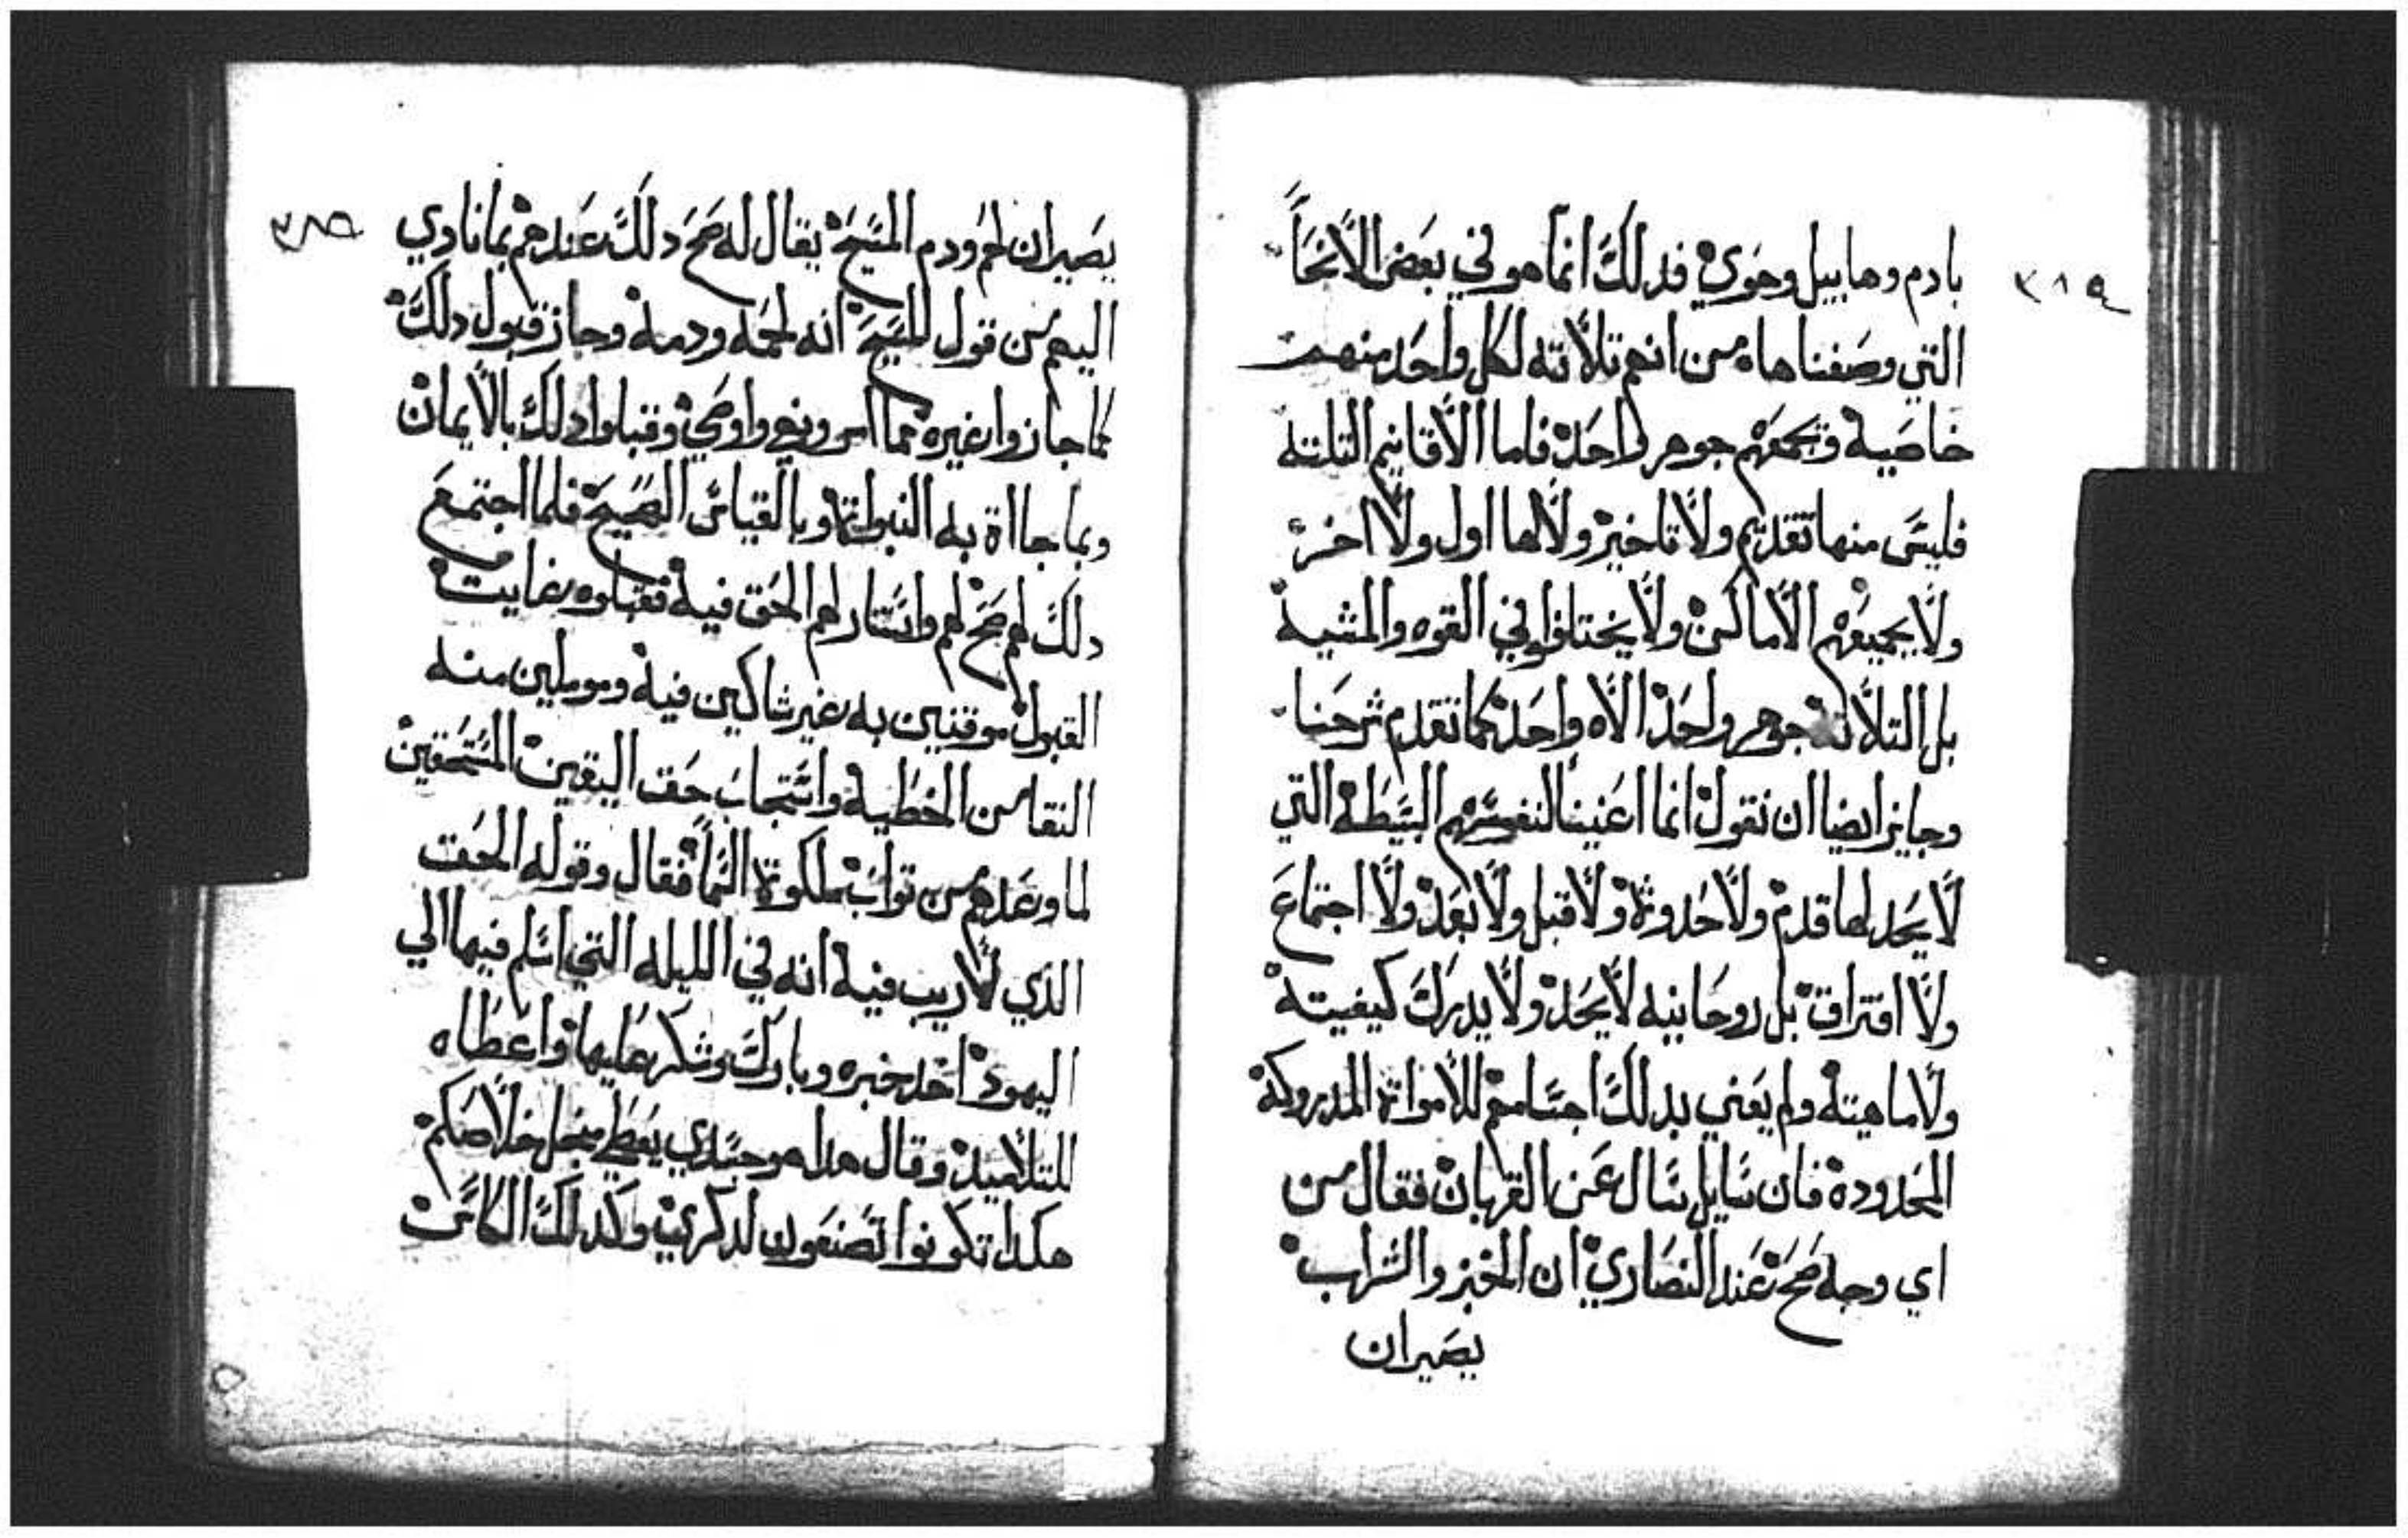 ٣١٤
بادم وهابيل وحوي فدلك انما هو في بعض الانحا
التي وصفناها من انهم تلاتة لكل واحد منهم
خاصية وتجمعهم جوهر واحد فاما الاقانيم التلتة
فليس منها تقديم ولا تاخير ولا لها اول ولا اخر
ولا يجميعهم الاماكن ولا يختلفوا في القوه والمشية
بل التلاتة جوهر واحد الاه واحد كما تقدم شرحنا
وجايز ايضا ان نقول انما اعنينا لنفوسهم البسيطة التي
لا يحد لها قدم ولا حدوثة ولا قبل ولا بعد ولا اجتماع
ولا افتراق بل روحانيه لا يحد ولا يدرك كيفيته
ولا ماهيتة ولم يعني بدلك اجسامهم للامواتة المدروكة
المحدودة فان سايل سال عن القربان فقال من
اي وجه صح عند النصاري ان الخبز والشراب
يصيران
٣١٥
يصيران لحم ودم المسيح يقال له صح دلك عندهم بما نادي
اليهم من قول المسيح انه لحمه ودمه وجاز قبول دلك
كما جازوا غيره مما امر ونهي واوصي وقبلوا دلك بالايمان
وبما جااة به النبواتة وبالقياس الصحيح فلما اجتمع
دلك لهم صح لهم واستنار لهم الحق فية فقبلوه بغايت
القبول موقنين به غير شاكين فية وموملين منه
النقا من الخطية واستجاب حق اليقين المستحقين
لما وعدهم من تواب ملكوة السما فقال وقوله الحق
الدي لا ريب فية انه في الليله التي اسلم فيها الي
اليهود اخد خبزه وبارك وشكر عليها واعطاه
للتلاميد وقال هدا هو جسدي يعطي من اجل خلاصكم
هكدا تكونوا تصنعون لدكري وكدلك الكاس